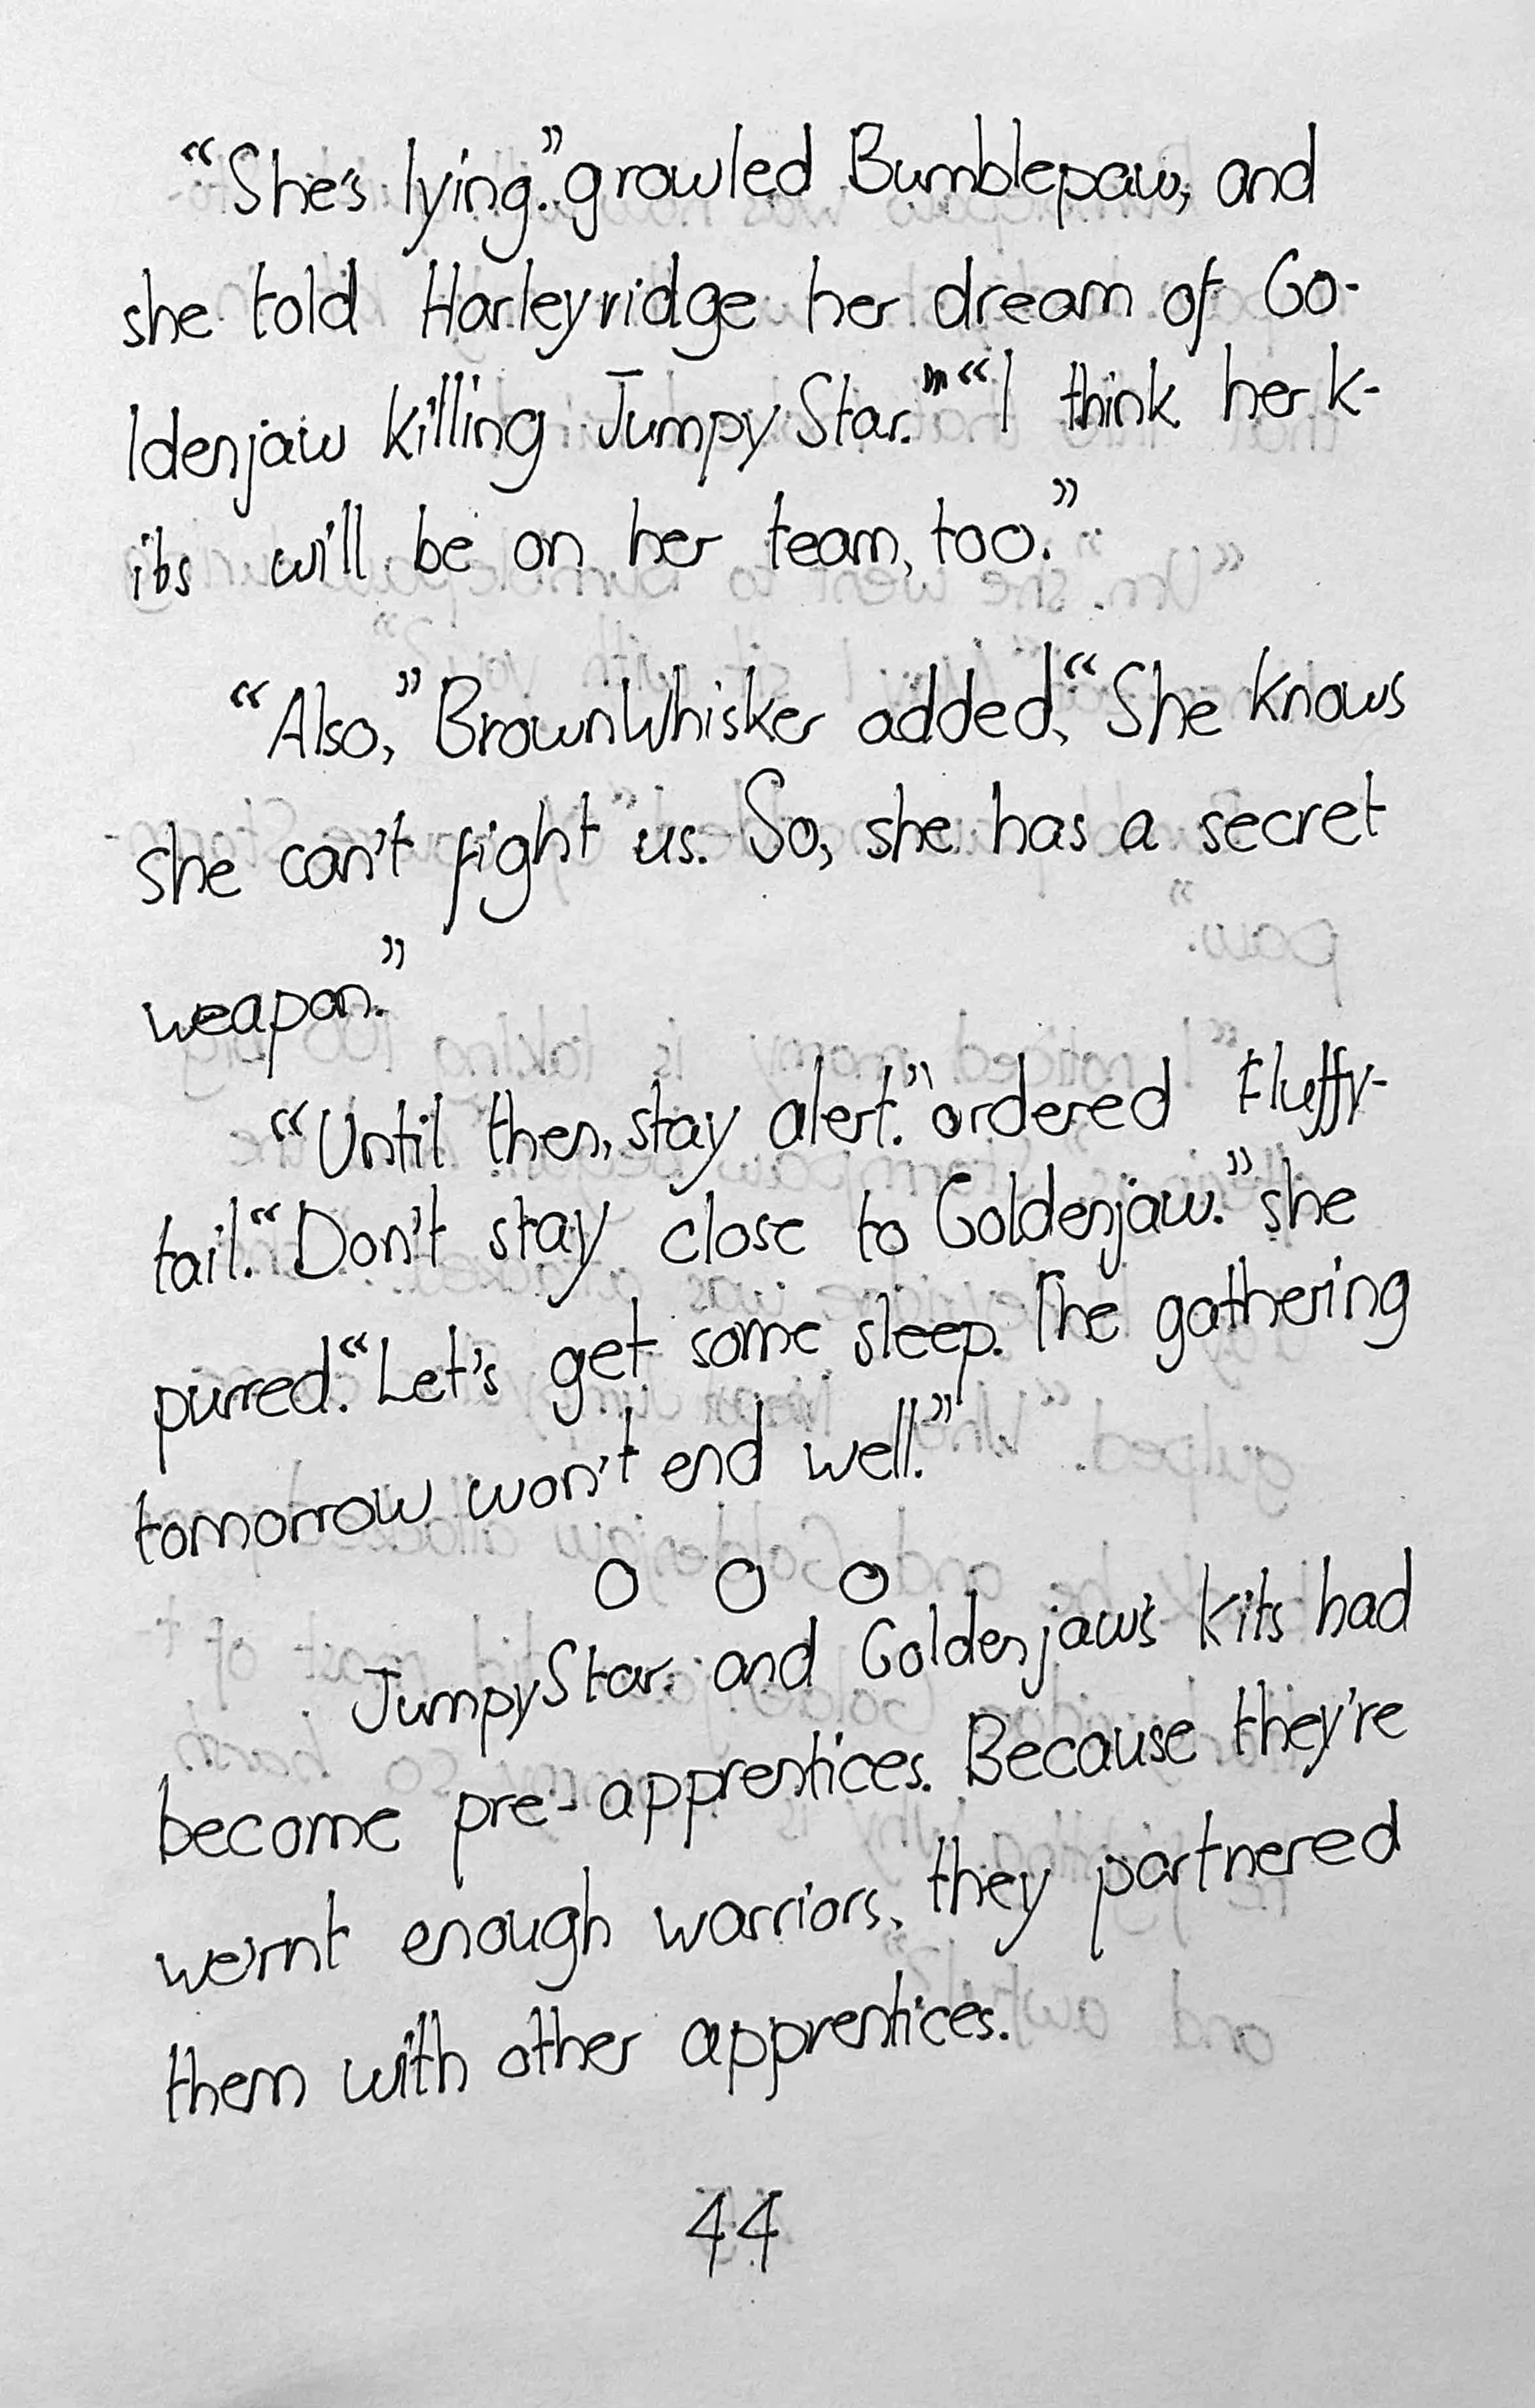 “She's lying.” growled Bumblepaw, and
she told Harleyridge her dream of Go-
ldenjaw killing JumpyStar.”“I think her k-
its will be on her team, too.”
“Also,” BrownWhisker added, “She knows
she can't fight us. So, she has a secret
weapon.”
“Until then, stay alert.” ordered Fluffy-
tail. “Don't stay close to Goldenjaw.” she
purred. “Let's get some sleep. The gathering
tomorrow won't end well.”
O O O
JumpyStar and Goldenjaw's kits had
become pre-apprentices. Because they're
wernt enough warriors, they partnered
them with other apprentices.
44